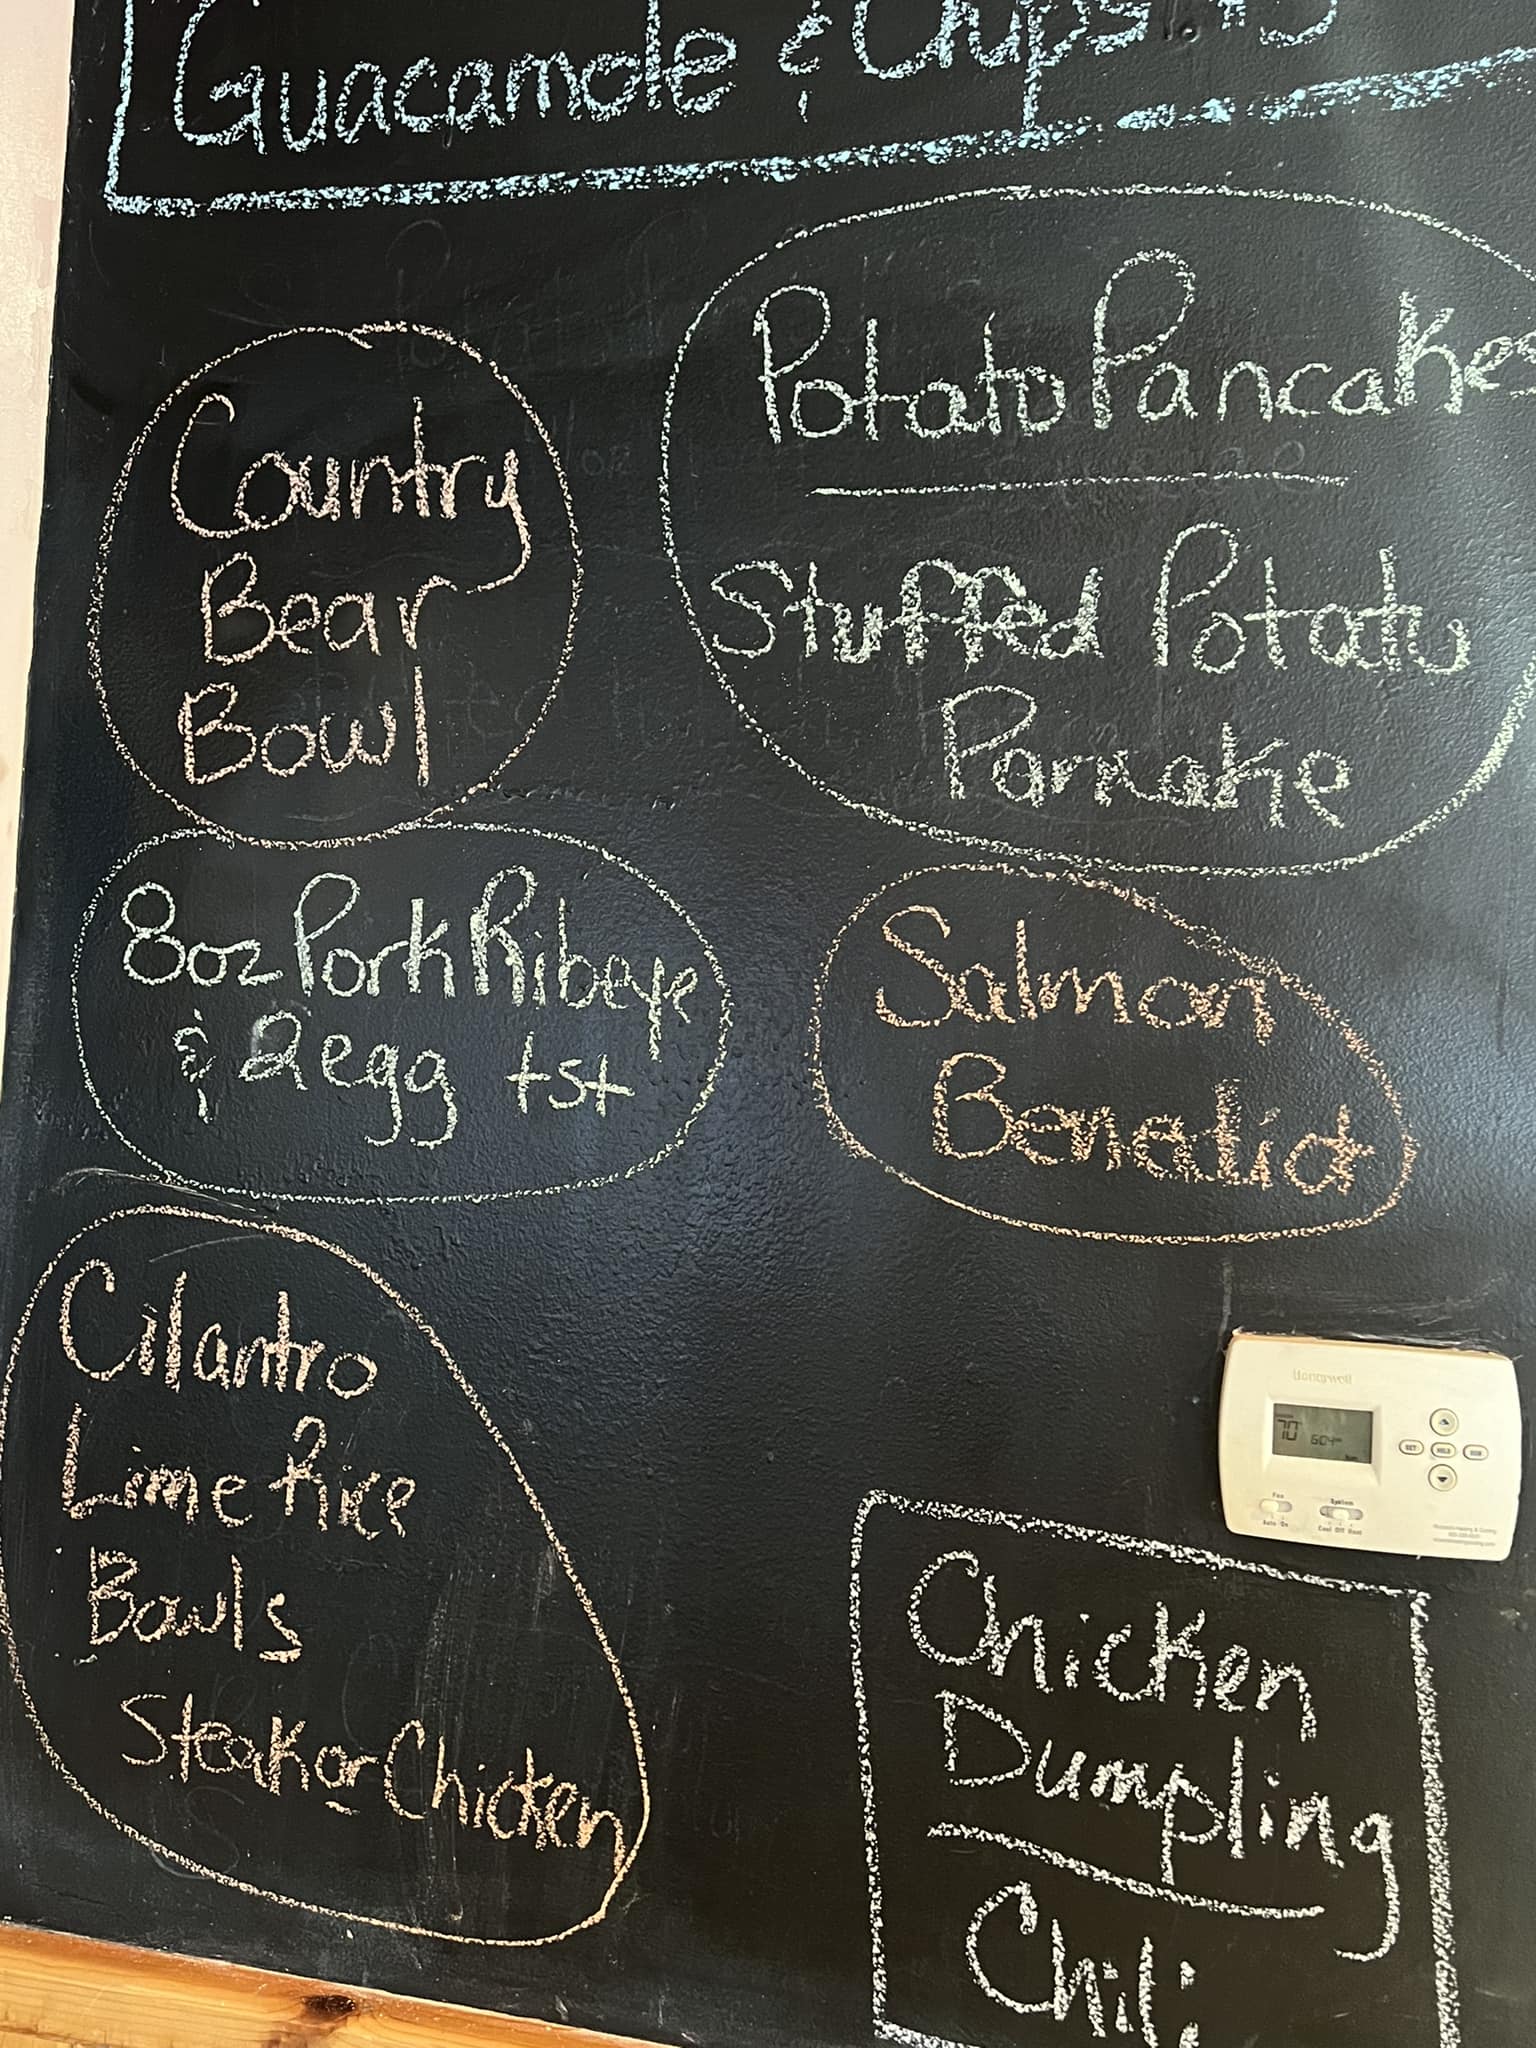 Guacamole & Chips
Country
Bear
Bowl
Potato Pancakes
Stuffed Potato
Pancake
8oz Pork Ribeye
& 2 egg tst
Salmon
Benedict
Cilantro
Lime Rice
Bowls
Steak or Chicken
Honeywell
70
6:04
SET
HOLD
RUN
Fan
Auto On
System
Cool Off Heat
Chicken
Dumpling
Chili